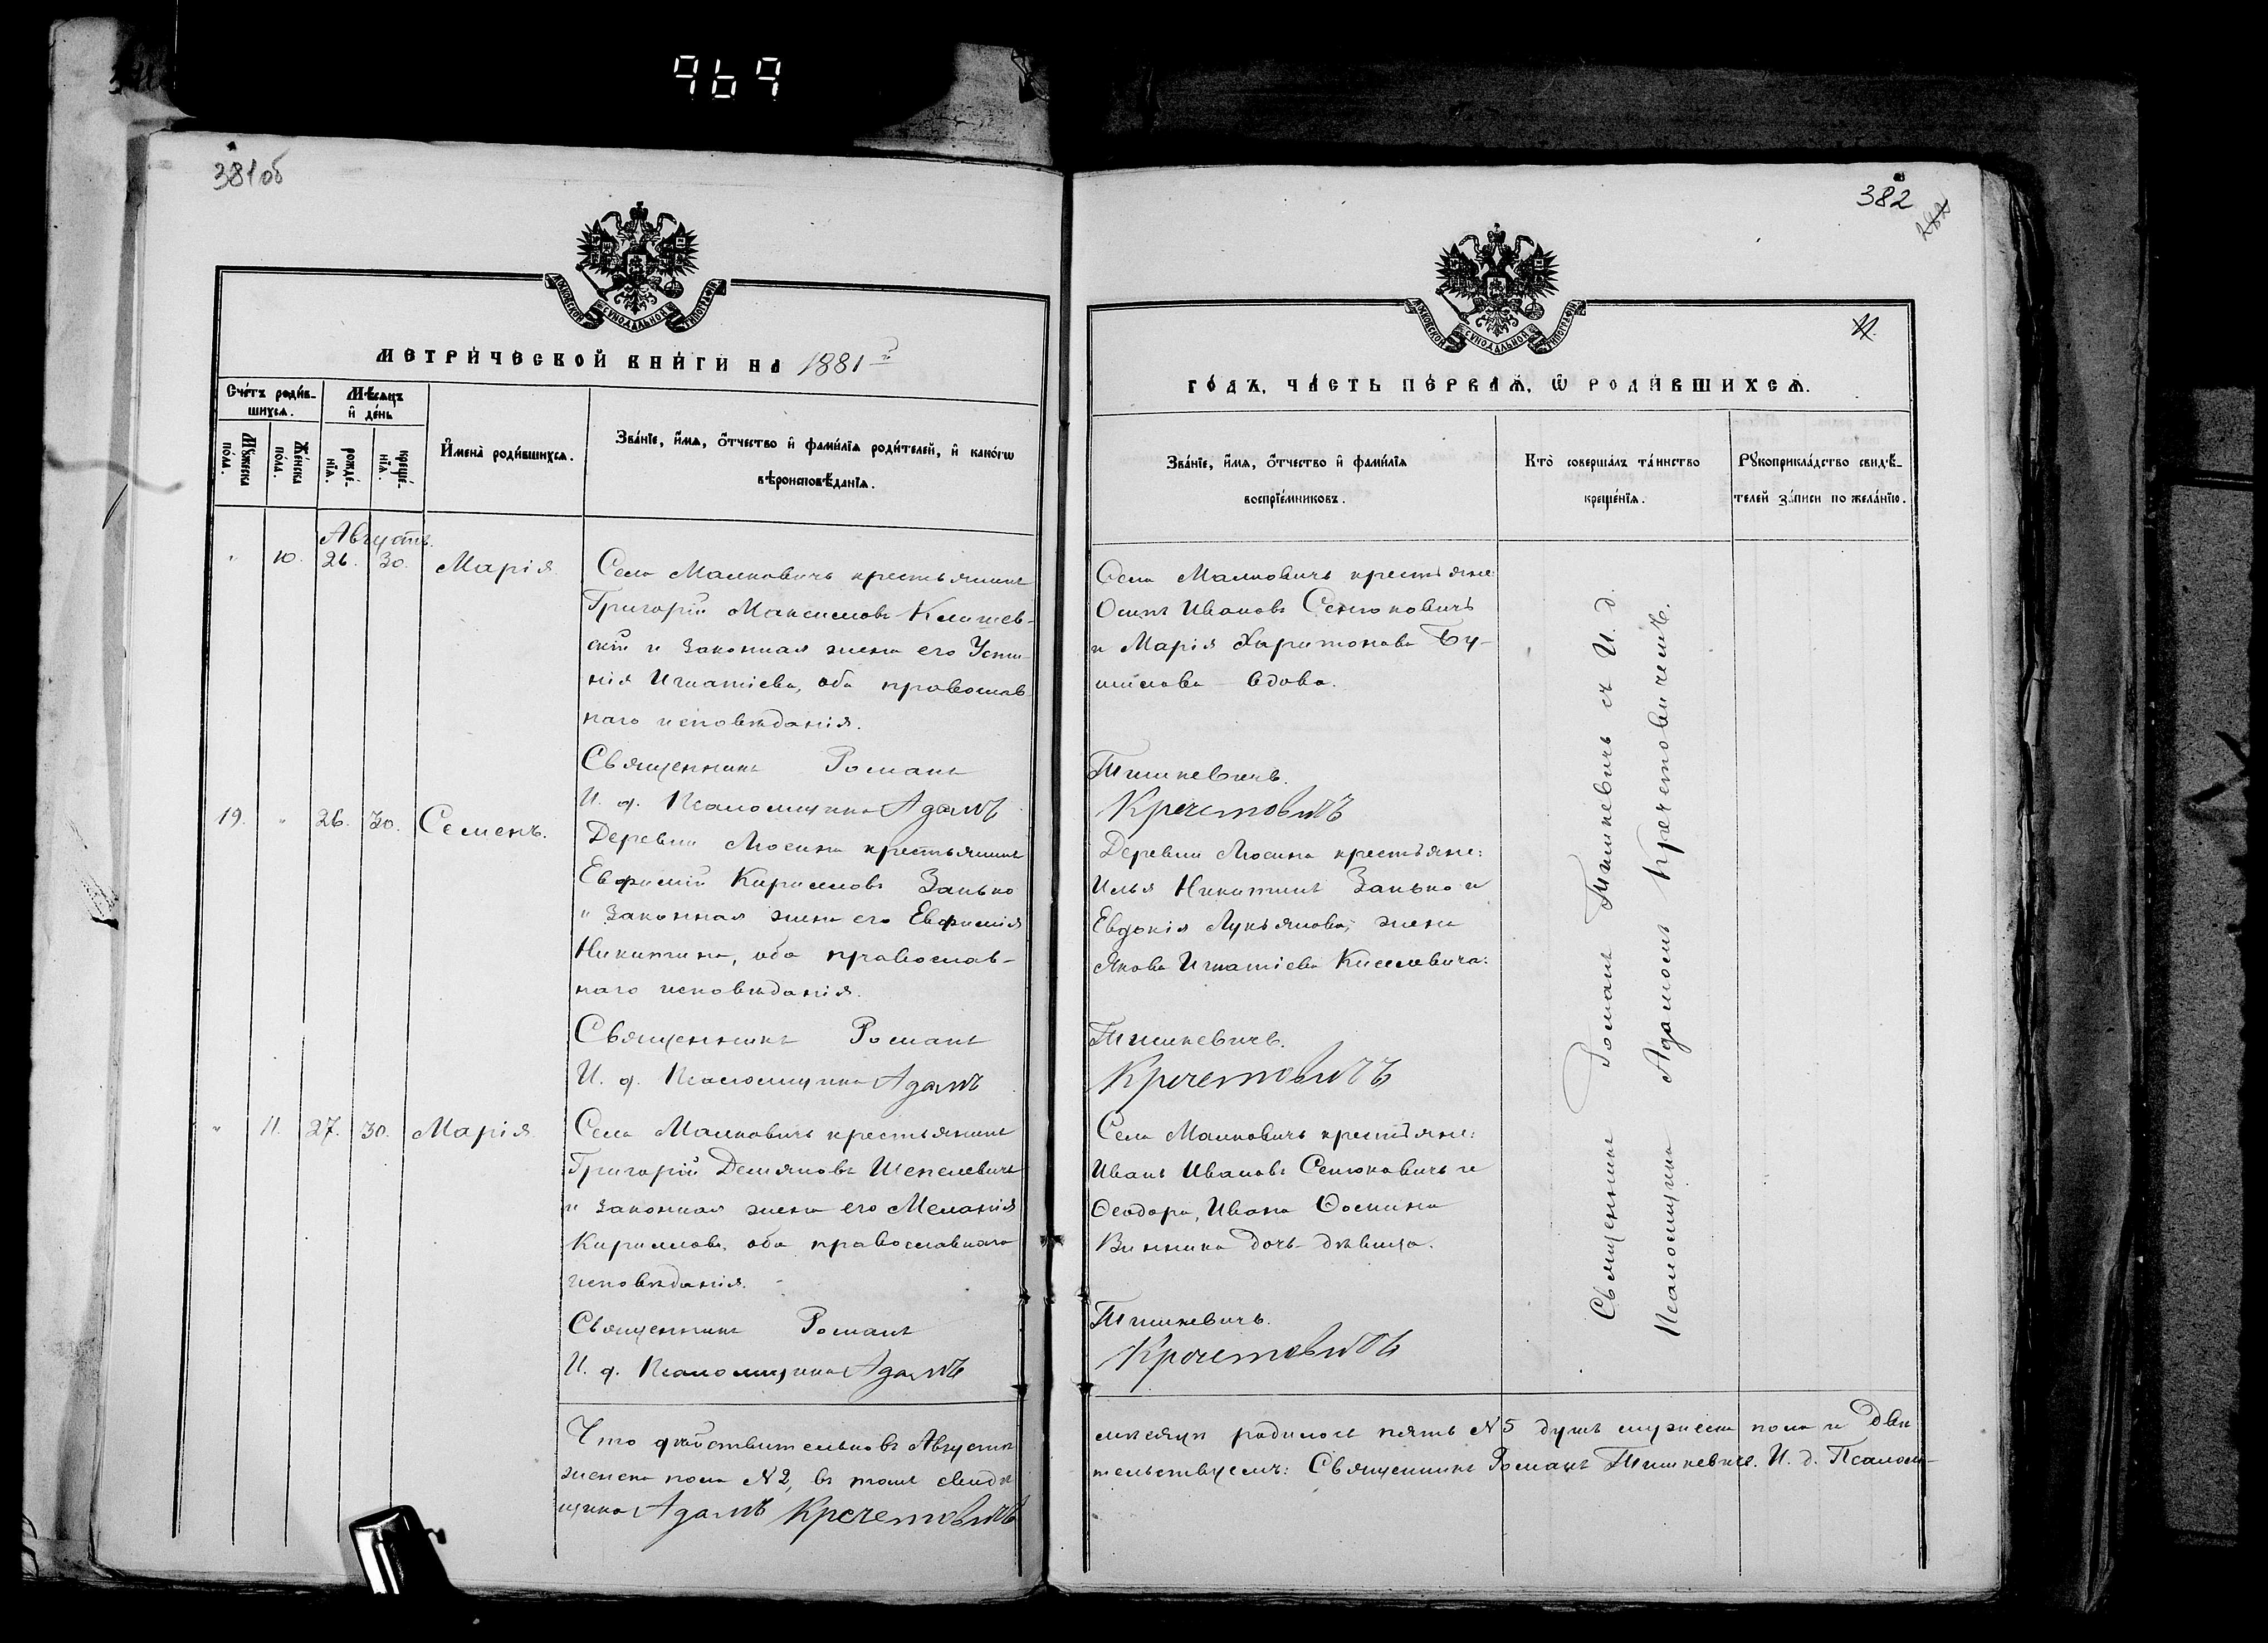 969
381об
МОСКОВСКОЙ СУНОДАЛЬНОЙ ТИПОГРАФІИ
МЕТРИЧЕСКОЙ КНИГИ НА 1881 й
Счетъ родив-
шихся.
Мѣсяцъ
и день
Мужеска
пола.
Женска
пола.
рожде-
нія.
креще-
нія.
Имена родившихся.
Званіе, имя, отчество и фамилія родителей, и какогѡ
вѣроисповѣданія.
Августъ.
" 10. 26. 30. Марія
Села Малковичъ крестьянинъ
Григорій Максимовъ
скій и законная жена его Усти-
нія Игнатіева, оба православ-
наго исповѣданія.
Священникъ Романъ
И. д. Псаломщика Адамъ
19. " 26. 30. Семенъ.
Деревни Люсина крестьянинъ
Евфимій Кирилловъ Занько
и законная жена его Евфимія
Никитина, оба православ-
наго исповѣданія.
Священникъ Романъ
И. д. Псаломщика Адамъ
" 11. 27. 30. Марія
Села Малковичъ крестьянинъ
Григорій Демяновъ Шепелевичъ
и законная жена его Меланія
Кириллова, оба православнаго
исповѣданія.
Священникъ Романъ
И. д. Псаломщика Адамъ
Что дѣйствительно въ Августѣ
женска пола №2, въ томъ свидѣ
щика Адамъ Кречетовичъ
382
МОСКОВСКОЙ СУНОДАЛЬНОЙ ТИПОГРАФІИ
ГОДЪ, ЧАСТЬ ПЕРВАЯ, Ѡ РОДИВШИХСЯ.
Званіе, имя, отчество и фамилія
воспріемниковъ.
Кто совершалъ таинство
крещенія.
Рукоприкладство свидѣ-
телей записи по желанію.
Села Малковичъ крестьяне
Осипъ Ивановъ Сенюковичъ
и Марія Харитонова
вдова.
Тишкевичъ.
Кречетовичъ
Деревни Люсина крестьяне:
Илья Никитинъ Занько и
Евдокія Лукьянова, жена
Якова Игнатіева Киселевича:
Тишкевичъ.
Кречетовичъ
Села Малковичъ крестьяне:
Иванъ Ивановъ Сенюковичъ и
Ѳеодора, Ивана Осипина
Винника дочь-дѣвица.
Тишкевичъ.
Кречетовичъ
Священникъ Романъ Тишкевичъ съ И. д.
Псаломщика Адамомъ Кречетовичемъ.
мѣсяцѣ родилось пять №5 душъ мужеска пола и двѣ
тельствуемъ: Священникъ Романъ Тишкевичъ. И. д. Псалом-